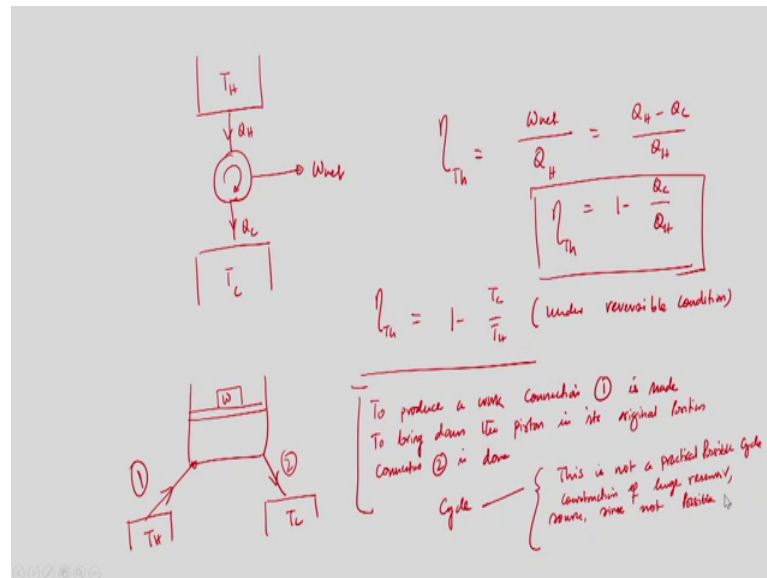 T_H
Q_H
W_net
Q_C
T_C
η_Th = W_net / Q_H = (Q_H - Q_C) / Q_H
η_Th = 1 - Q_C / Q_H
η_Th = 1 - T_C / T_H (under reversible condition)
W
①
②
T_H
T_C
To produce a work connection ① is made
To bring down the piston in its original position
connection ② is done
Cycle
This is not a practical Possible Cycle
construction of huge reservoir,
source, sink not Possible